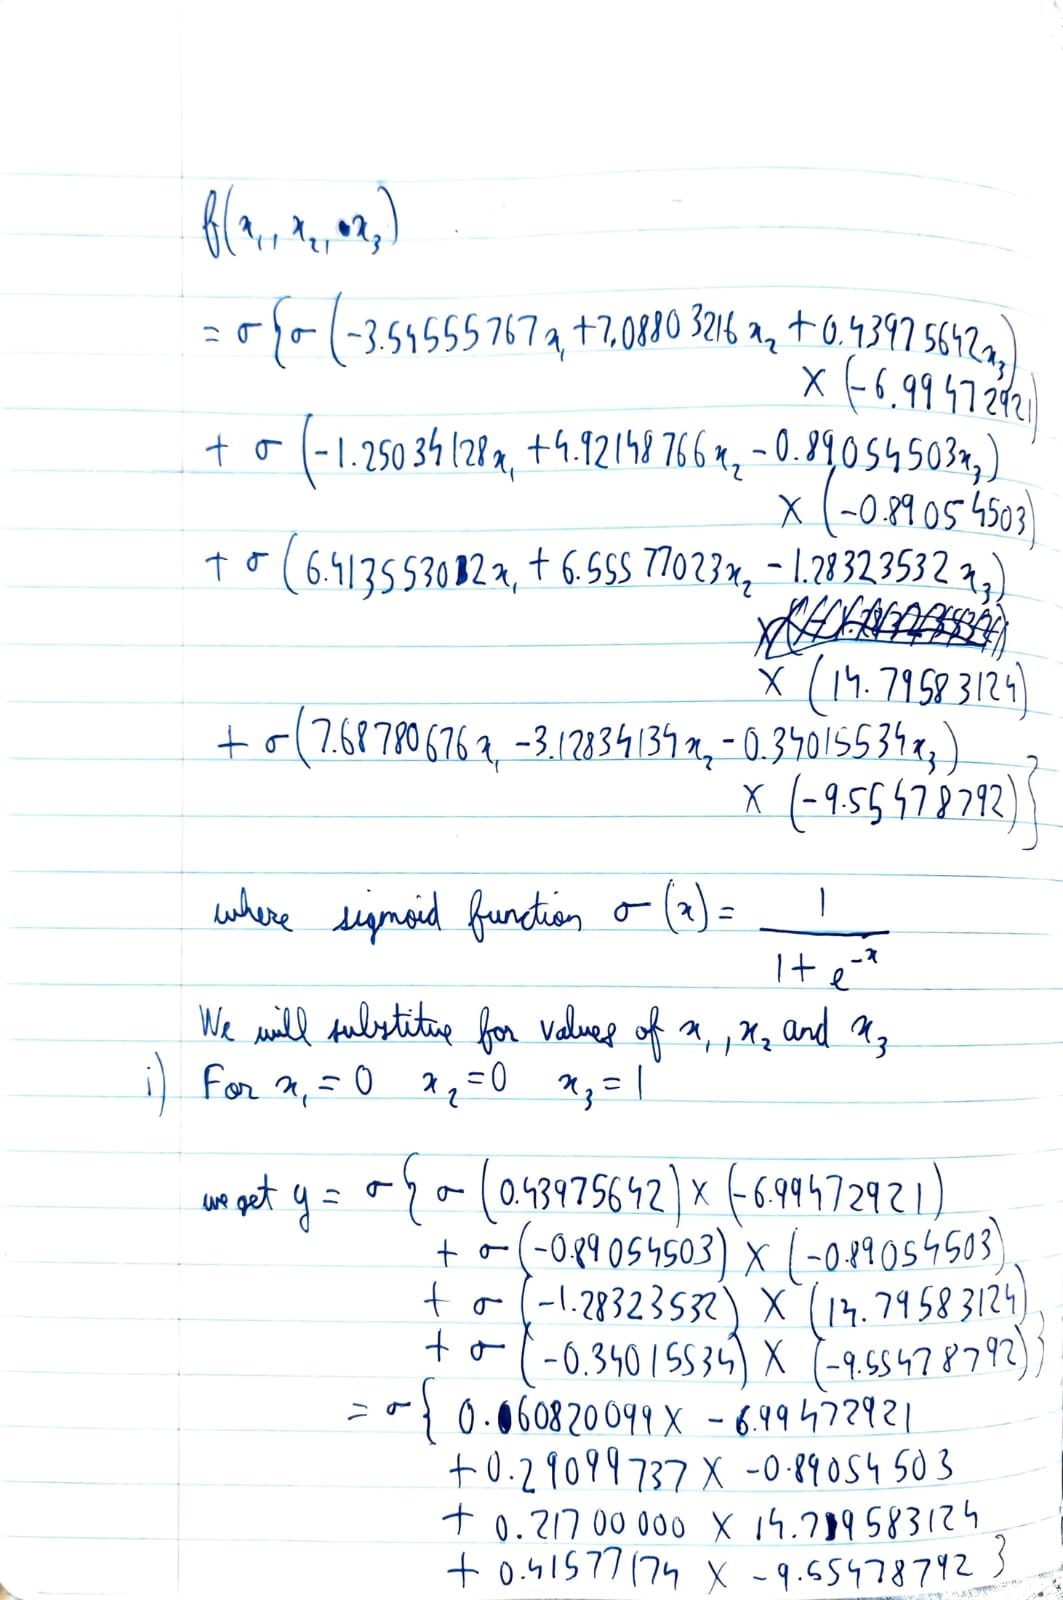 f(x₁, x₂, x₃)
= σ{σ(-3.54555767x₁ +7.08803216x₂ +0.43975642x₃)
× (-6.99472921)
+ σ (-1.25034128x₁ +4.92148766x₂ -0.89054503x₃)
× (-0.89054503)
+ σ (6.413553012x₁ + 6.55577023x₂ -1.28323532x₃)
× (14.79583124)
+ σ(7.68780676x₁ -3.12834134x₂ -0.34015534x₃)
× (-9.55478792)}
where sigmoid function σ(x) = 1
1+ e⁻ˣ
We will substitue for values of x₁, x₂ and x₃
i) For x₁ = 0 x₂ =0 x₃ = 1
we get y = σ{ σ (0.43975642) × (-6.99472921)
+ σ (-0.89054503) × (-0.89054503)
+ σ (-1.28323532) × (14.79583124)
+ σ (-0.34015534) × (-9.55478792)}
= σ{ 0.60820099 × -6.99472921
+ 0.29099737 × -0.89054503
+ 0.21700000 × 14.79583124
+ 0.41577174 × -9.55478792}